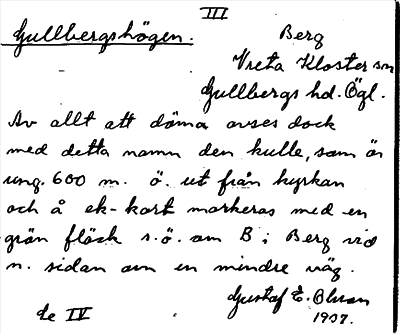 III
Gullbergshögen.
Berg
Vreta Kloster sn
Gullbergs hd. Ögl.
Av allt att döma avses dock
med detta namn den kulle, som är
ung. 600 m. ö. ut från kyrkan
och å ek-kart markeras med en
grön fläck s.ö. om B i Berg vid
n. sidan om en mindre väg.
Gustaf E. Olsson
1937.
se IV